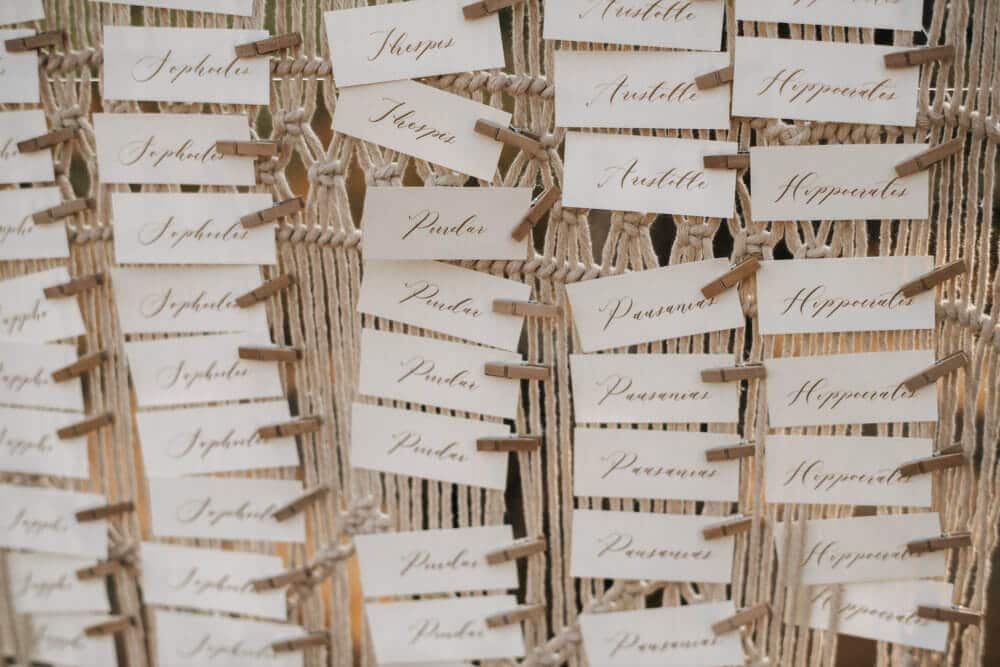 Sophocles
Sophocles
Sophocles
Sophocles
Sophocles
Sophocles
Sophocles
Sophocles
Sappho
Sappho
Thespis
Thespis
Pindar
Pindar
Pindar
Pindar
Pindar
Pindar
Aristotle
Aristotle
Aristotle
Pausanias
Pausanias
Pausanias
Pausanias
Pausanias
Hippocrates
Hippocrates
Hippocrates
Hippocrates
Hippocrates
Hippocrates
Hippocrates